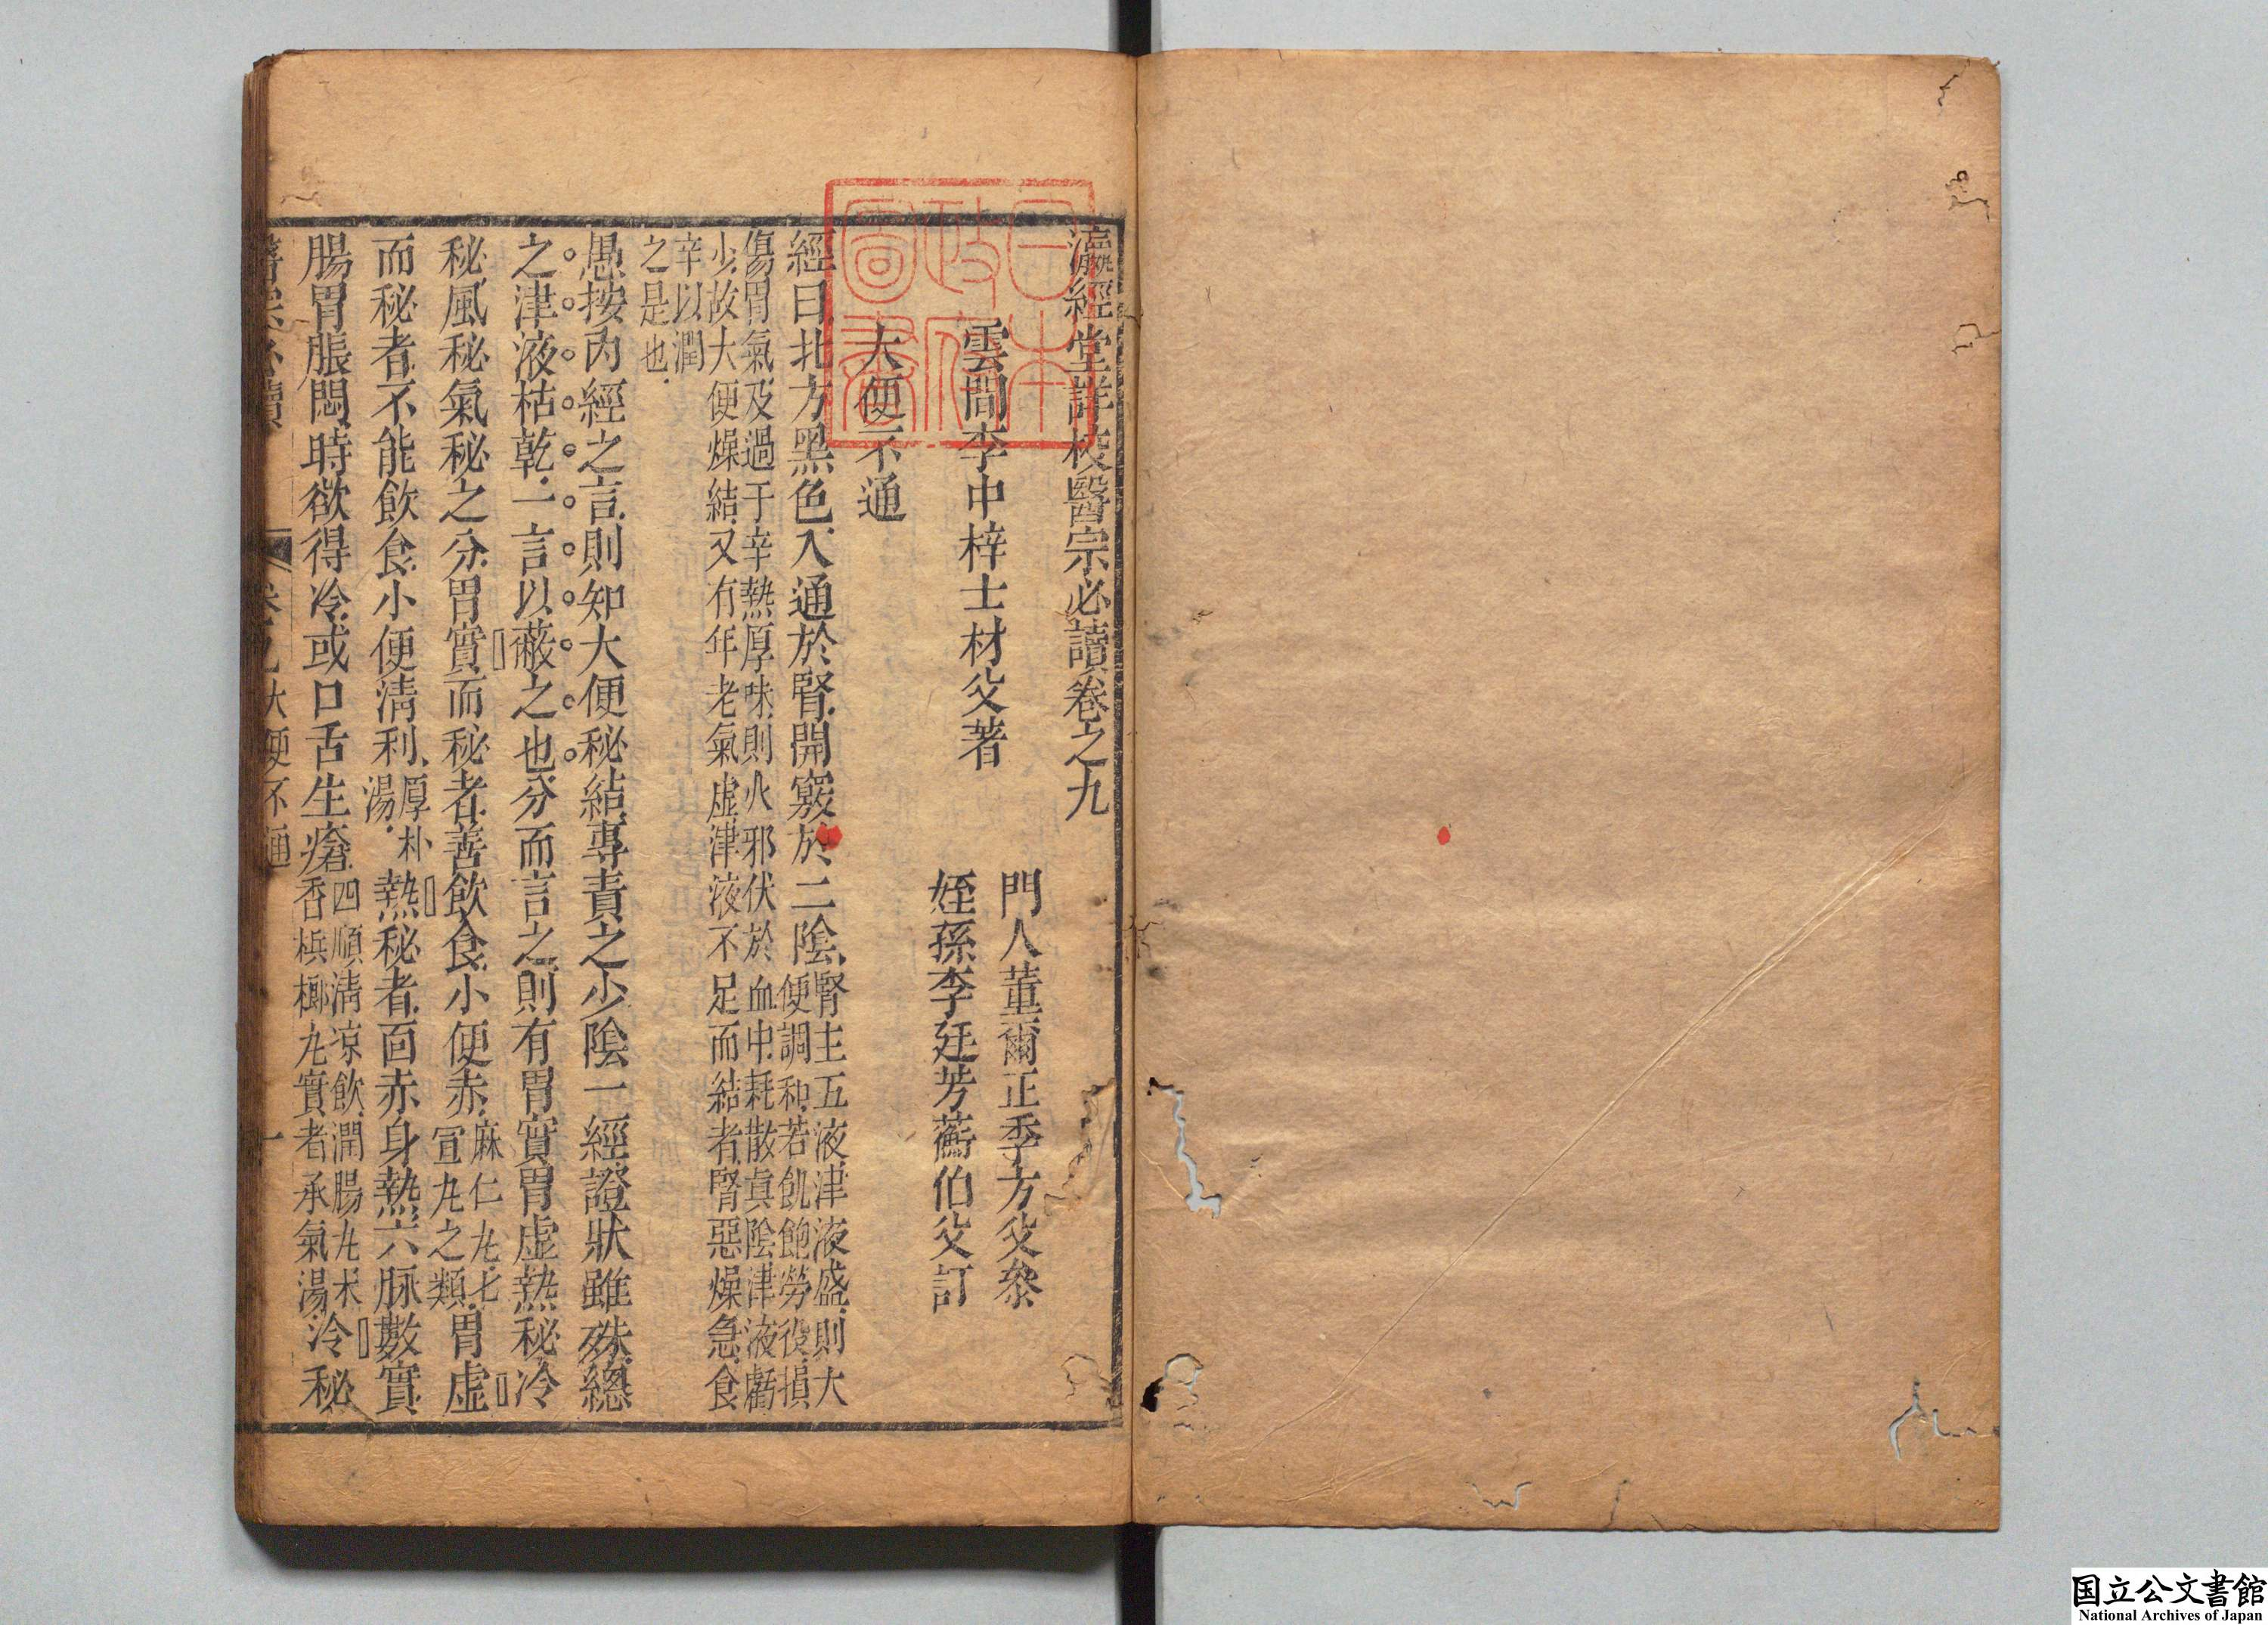 瀛經堂詳校醫宗必讀卷之九
雲間李中梓士材父著
門人董爾正季方父參
姪孫李廷芳蘅伯父訂
大便不通
經曰北方黑色入通於腎開竅於二陰腎主五液津液盛則大
便調和若飢飽勞役損
傷胃氣及過于辛熱厚味則火邪伏於血中耗散真陰津液虧
少故大便燥結又有年老氣虛津液不足而結者腎惡燥急食
辛以潤
之是也
愚按內經之言則知大便秘結專責之少陰一經證狀雖殊總
之津液枯乾一言以蔽之也分而言之則有胃實胃虛熱秘冷
秘風秘氣秘之分胃實而秘者善飲食小便赤麻仁丸七
宣丸之類胃虛
而秘者不能飲食小便清利厚朴
湯熱秘者面赤身熱六脉數實
腸胃脹悶時欲得冷或口舌生瘡四順清凉飲潤腸丸木
香檳榔丸實者承氣湯冷秘
醫宗必讀 卷之九 大便不通 一
日本
政府
圖書
国立公文書館
National Archives of Japan